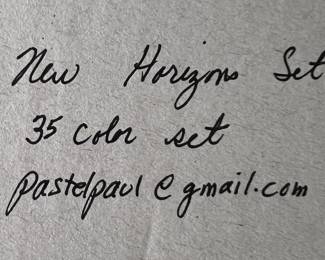 New Horizons Set
35 color set
pastelpaul@gmail.com